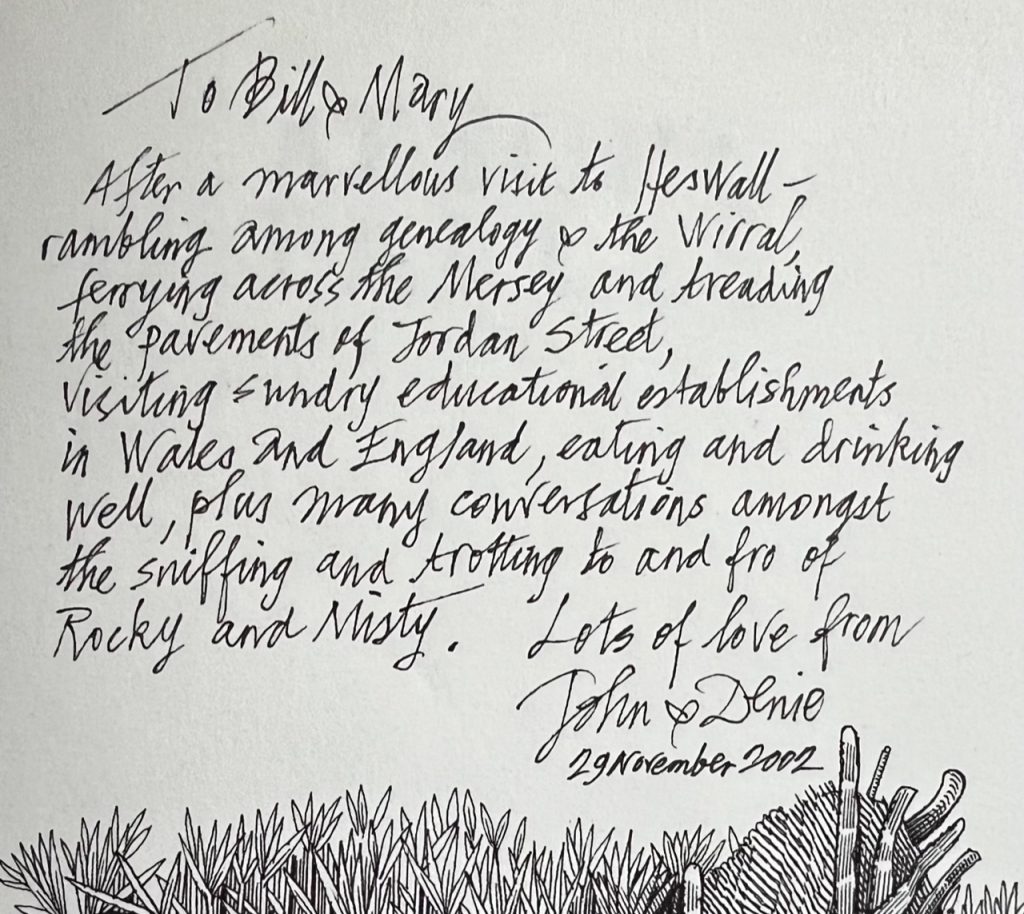 To Bill & Mary
After a marvellous visit to Heswall –
rambling among genealogy & the Wirral,
ferrying across the Mersey and treading
the pavements of Jordan Street,
visiting sundry educational establishments
in Wales and England, eating and drinking
well, plus many conversations amongst
the sniffing and trotting to and fro of
Rocky and Misty. Lots of love from
John & Denie
29 November 2002